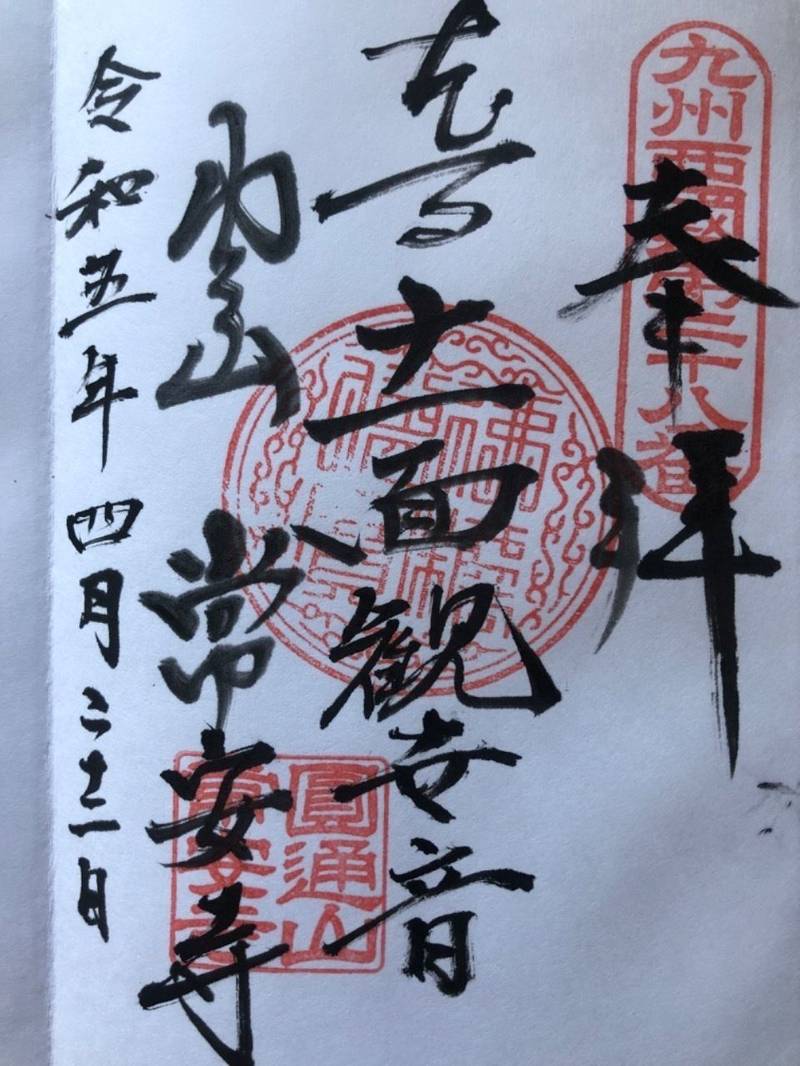 九州西国第二十八番
奉拝
十一面観世音
円通山 常安寺
圓通山
常安寺
令和五年四月二十二日